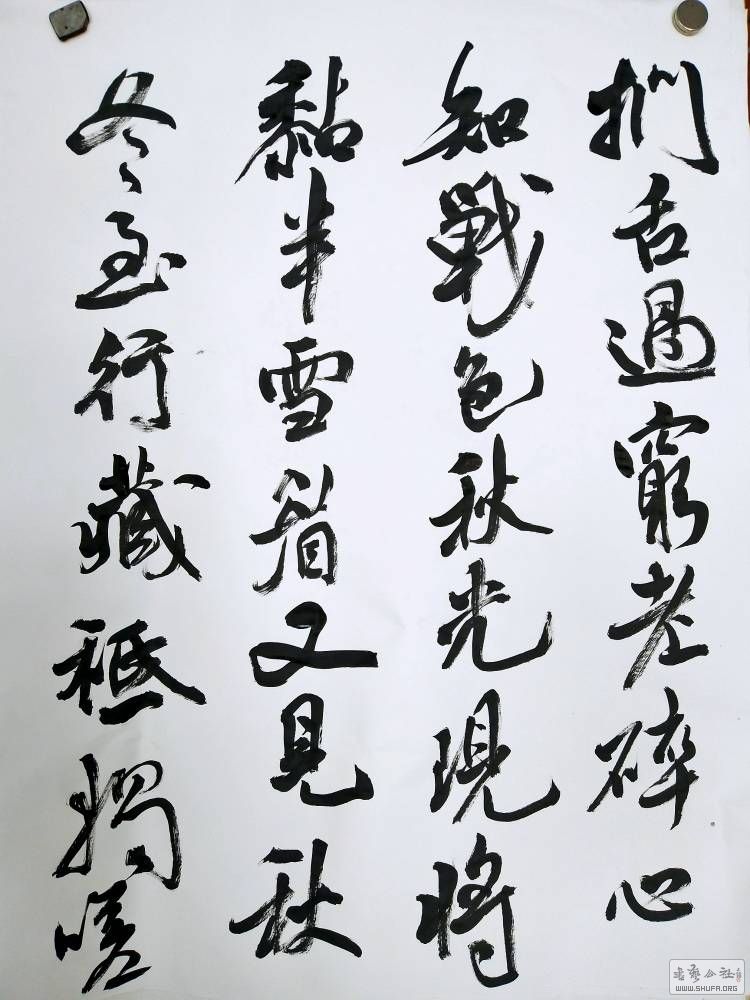 捫舌過窮老碎心
知戰色秋光現將
黏半雪又見秋
冬至行藏秪獨嗟
书艺公社
WWW.SHUFA.ORG